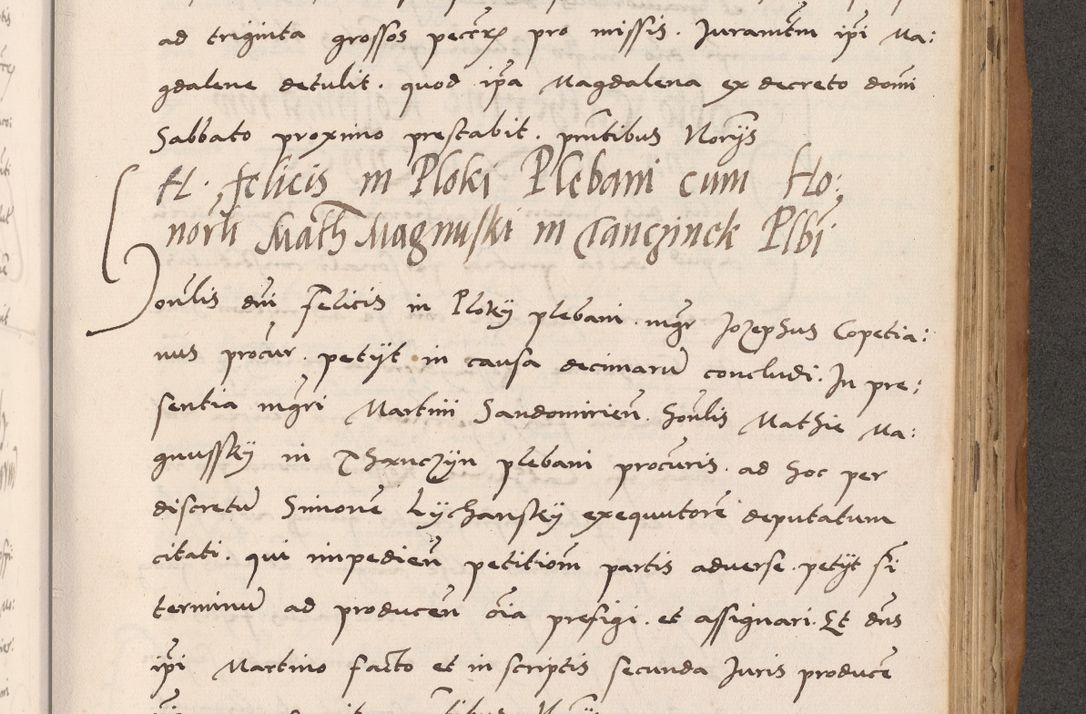 ad triginta grossos peccũ pro missis. Juramẽtm ip̃i Ma:
gdalene detulit. quod ip̃a Magdalena ex decreto domi
Sabbato proximo prestabit. pñtibus Norijs
H. felicis in Ploki Plebani cum Ho:
norli Math Magnuski in Tanczinek Plbi
Hoñlis dñi felicis in Ploky plebani mgr Jozephus Copetia:
nus procur. petijt in causa decimarũ concludi. In pre:
sentia mgri Martini Sandomirieñ. hoñlis Mathie Ma:
gnussky in Thxnczyn plebani procuris. ad hoc per
discretũ Simonẽ Lychansky exequutorẽ deputatum
citati. qui impedieñ petitioñ partis adverse. petijt si
terminũ ad produceñ oĩa prefigi. et assignari. Et dñs
ip̃i Martino facto et in scriptis secunda Juris producẽ